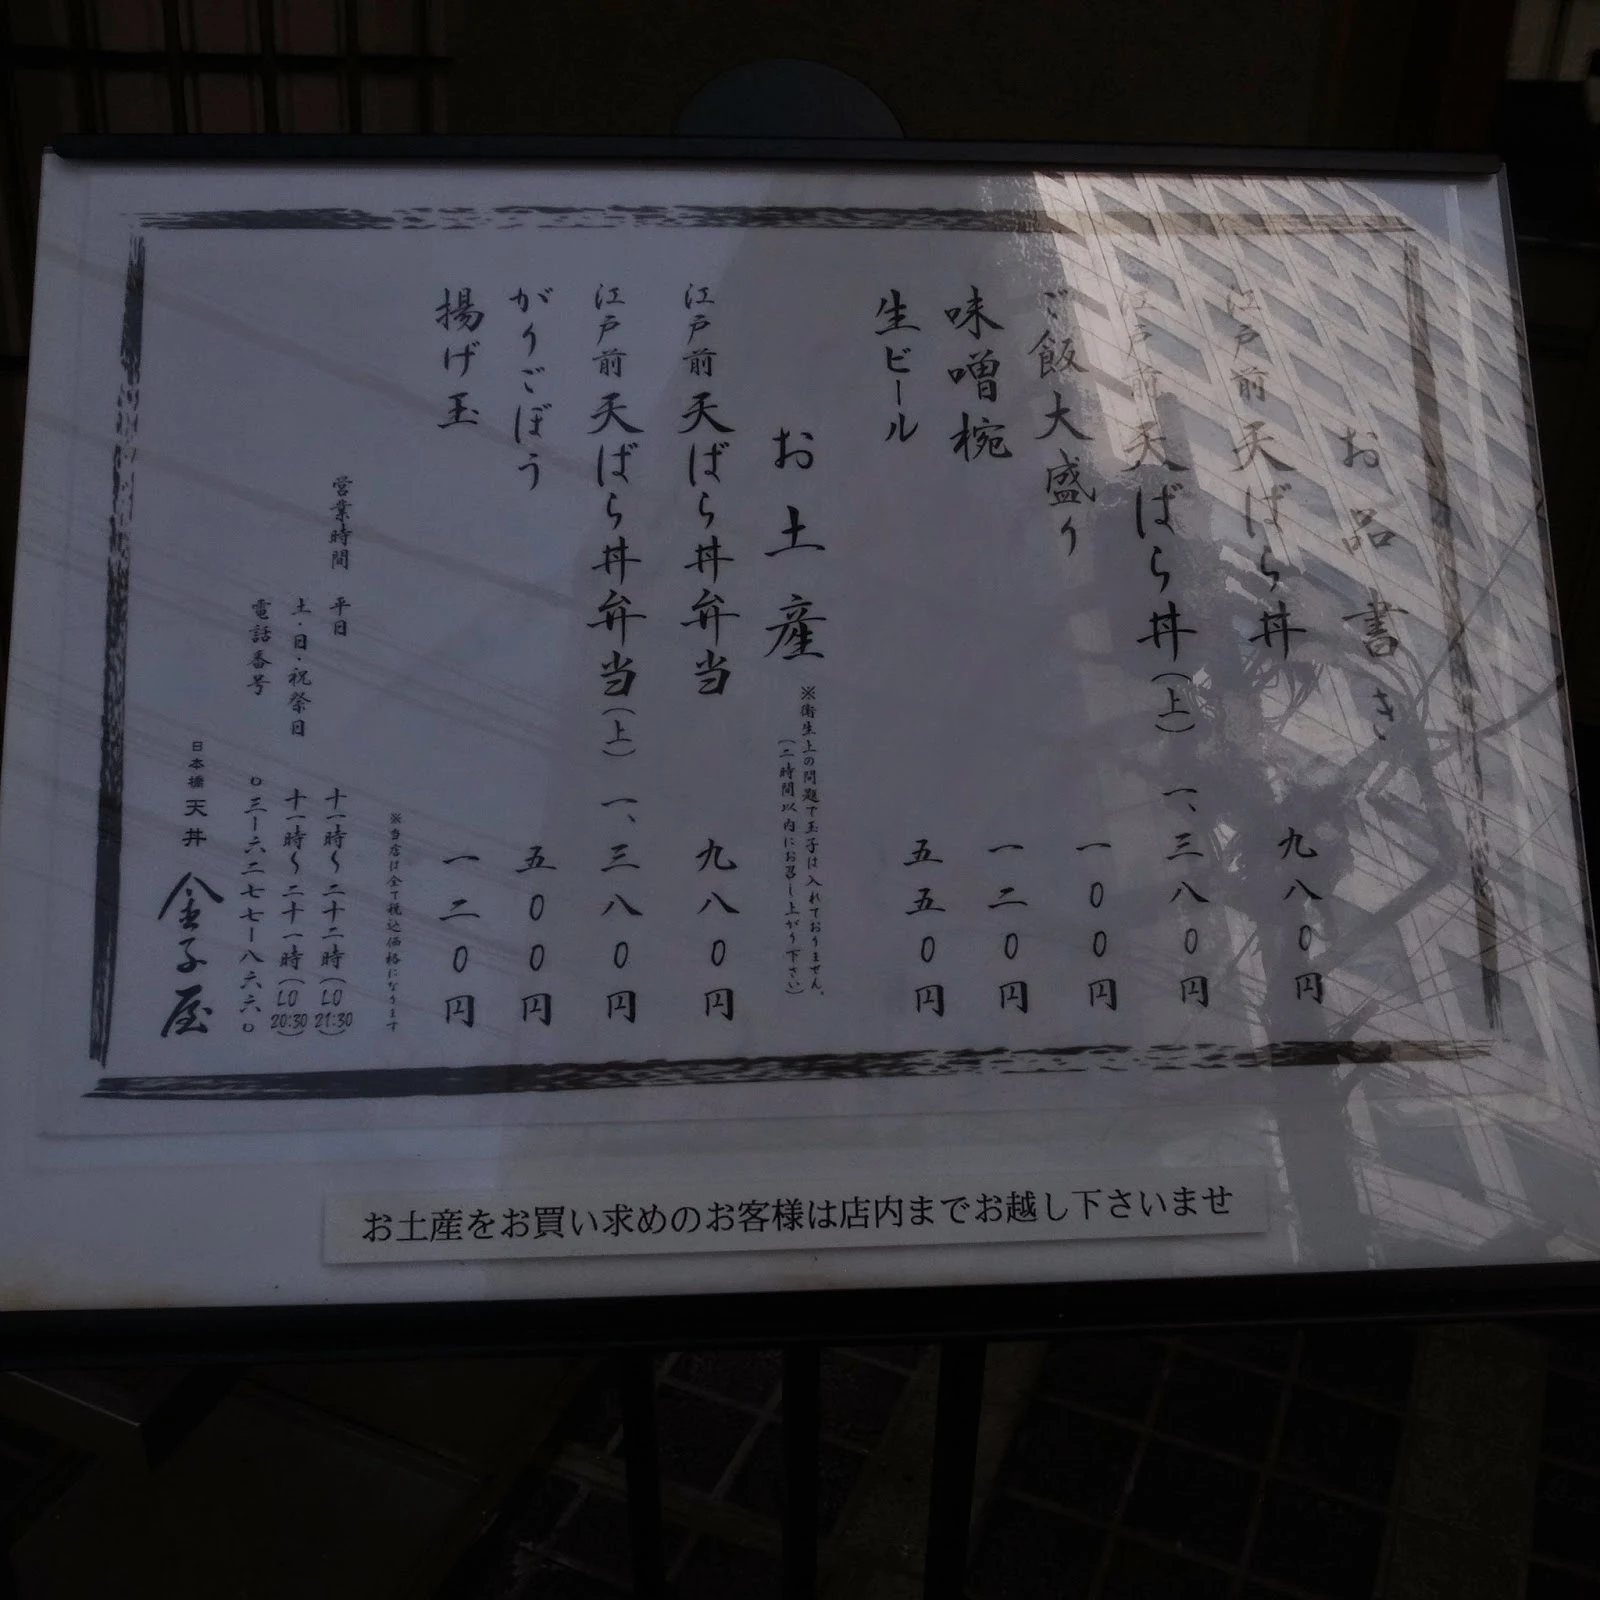 お品書き
江戸前 天ばら丼 九八〇円
江戸前 天ばら丼(上) 一、三八〇円
ご飯大盛り 一〇〇円
味噌椀 一二〇円
生ビール 五五〇円
お土産
※衛生上の問題で玉子は入れておりません。
(二時間以内にお召し上がり下さい)
江戸前 天ばら丼弁当 九八〇円
江戸前 天ばら丼弁当(上) 一、三八〇円
がりごぼう 五〇〇円
揚げ玉 一二〇円
※当店は全て税込価格になります
営業時間 平日 十一時〜二十二時(LO 21:30)
土・日・祝祭日 十一時〜二十一時(LO 20:30)
電話番号 〇三ー六二七七ー八六六〇
日本橋 天丼 金子屋
お土産をお買い求めのお客様は店内までお越し下さいませ